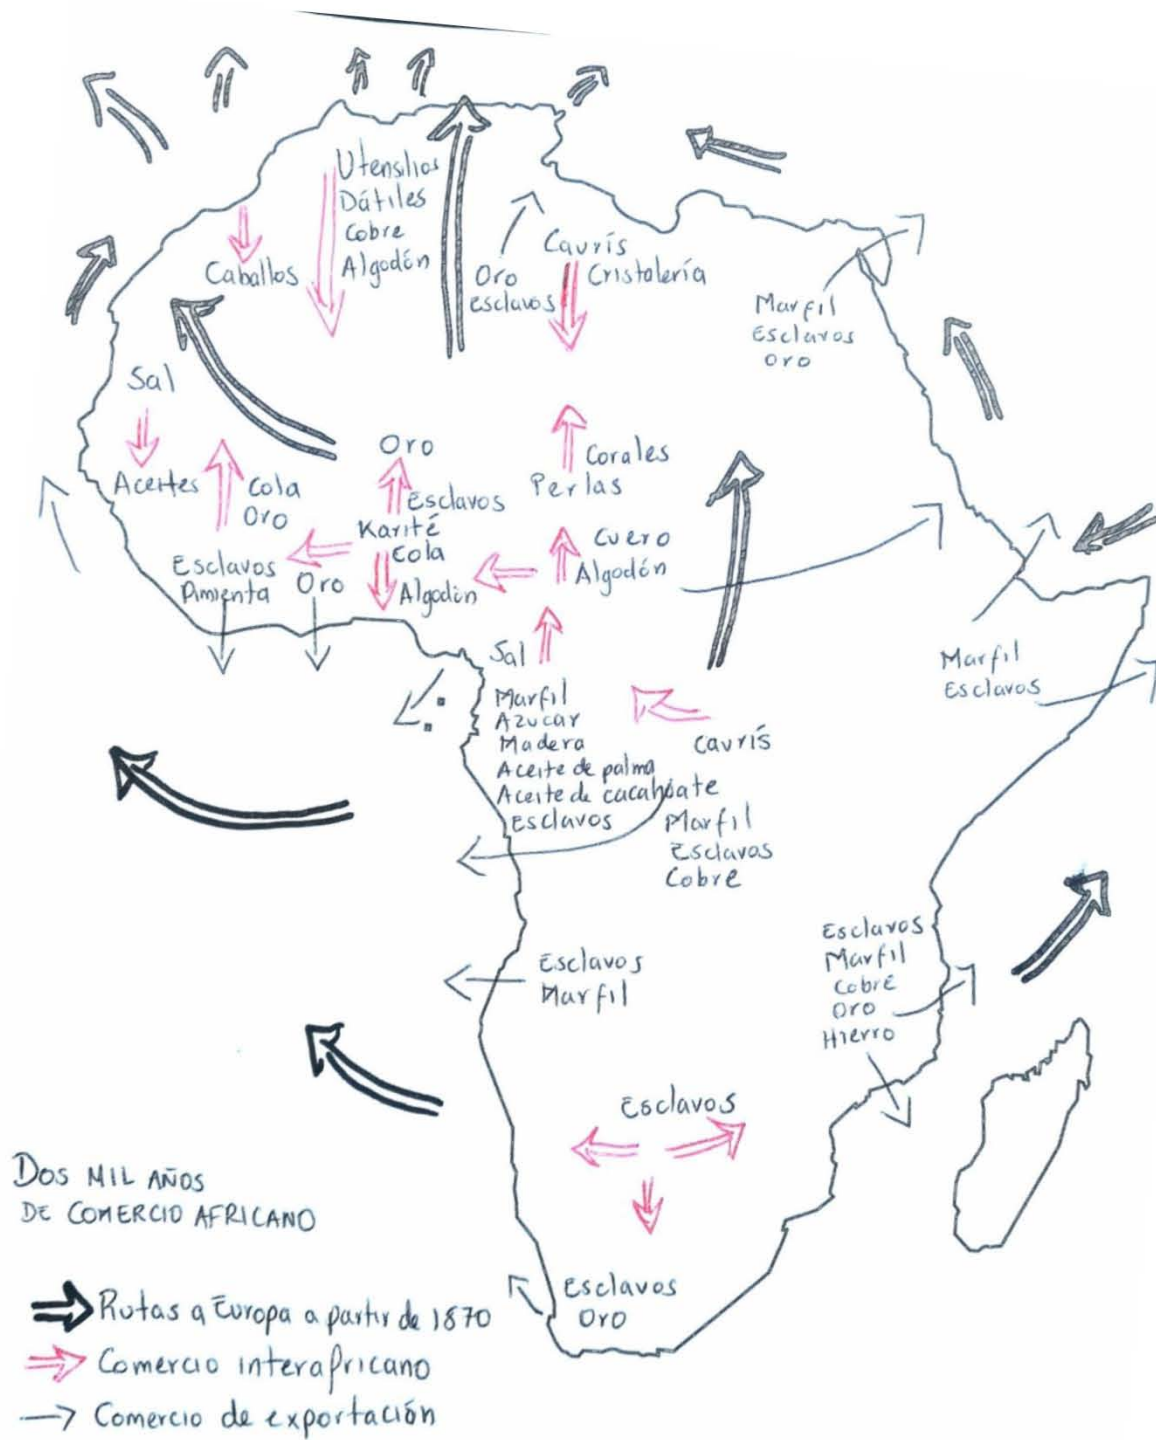 Utensilios
Dátiles
Cobre
Algodón
Caballos
Oro
esclavos
Caurís
Cristalería
Marfil
Esclavos
oro
Sal
Aceites
Cola
Oro
Oro
Esclavos
Karité
Cola
Algodón
Corales
Perlas
Cuero
Algodón
Esclavos
Pimienta
Oro
Sal
Marfil
Azucar
Madera
Aceite de palma
Aceite de cacahuate
Esclavos
Caurís
Marfil
Esclavos
Marfil
Esclavos
Cobre
Esclavos
Marfil
Esclavos
Marfil
Cobre
Oro
Hierro
Esclavos
Esclavos
Oro
DOS MIL AÑOS
DE COMERCIO AFRICANO
Rutas a Europa a partir de 1870
Comercio interafricano
Comercio de exportación